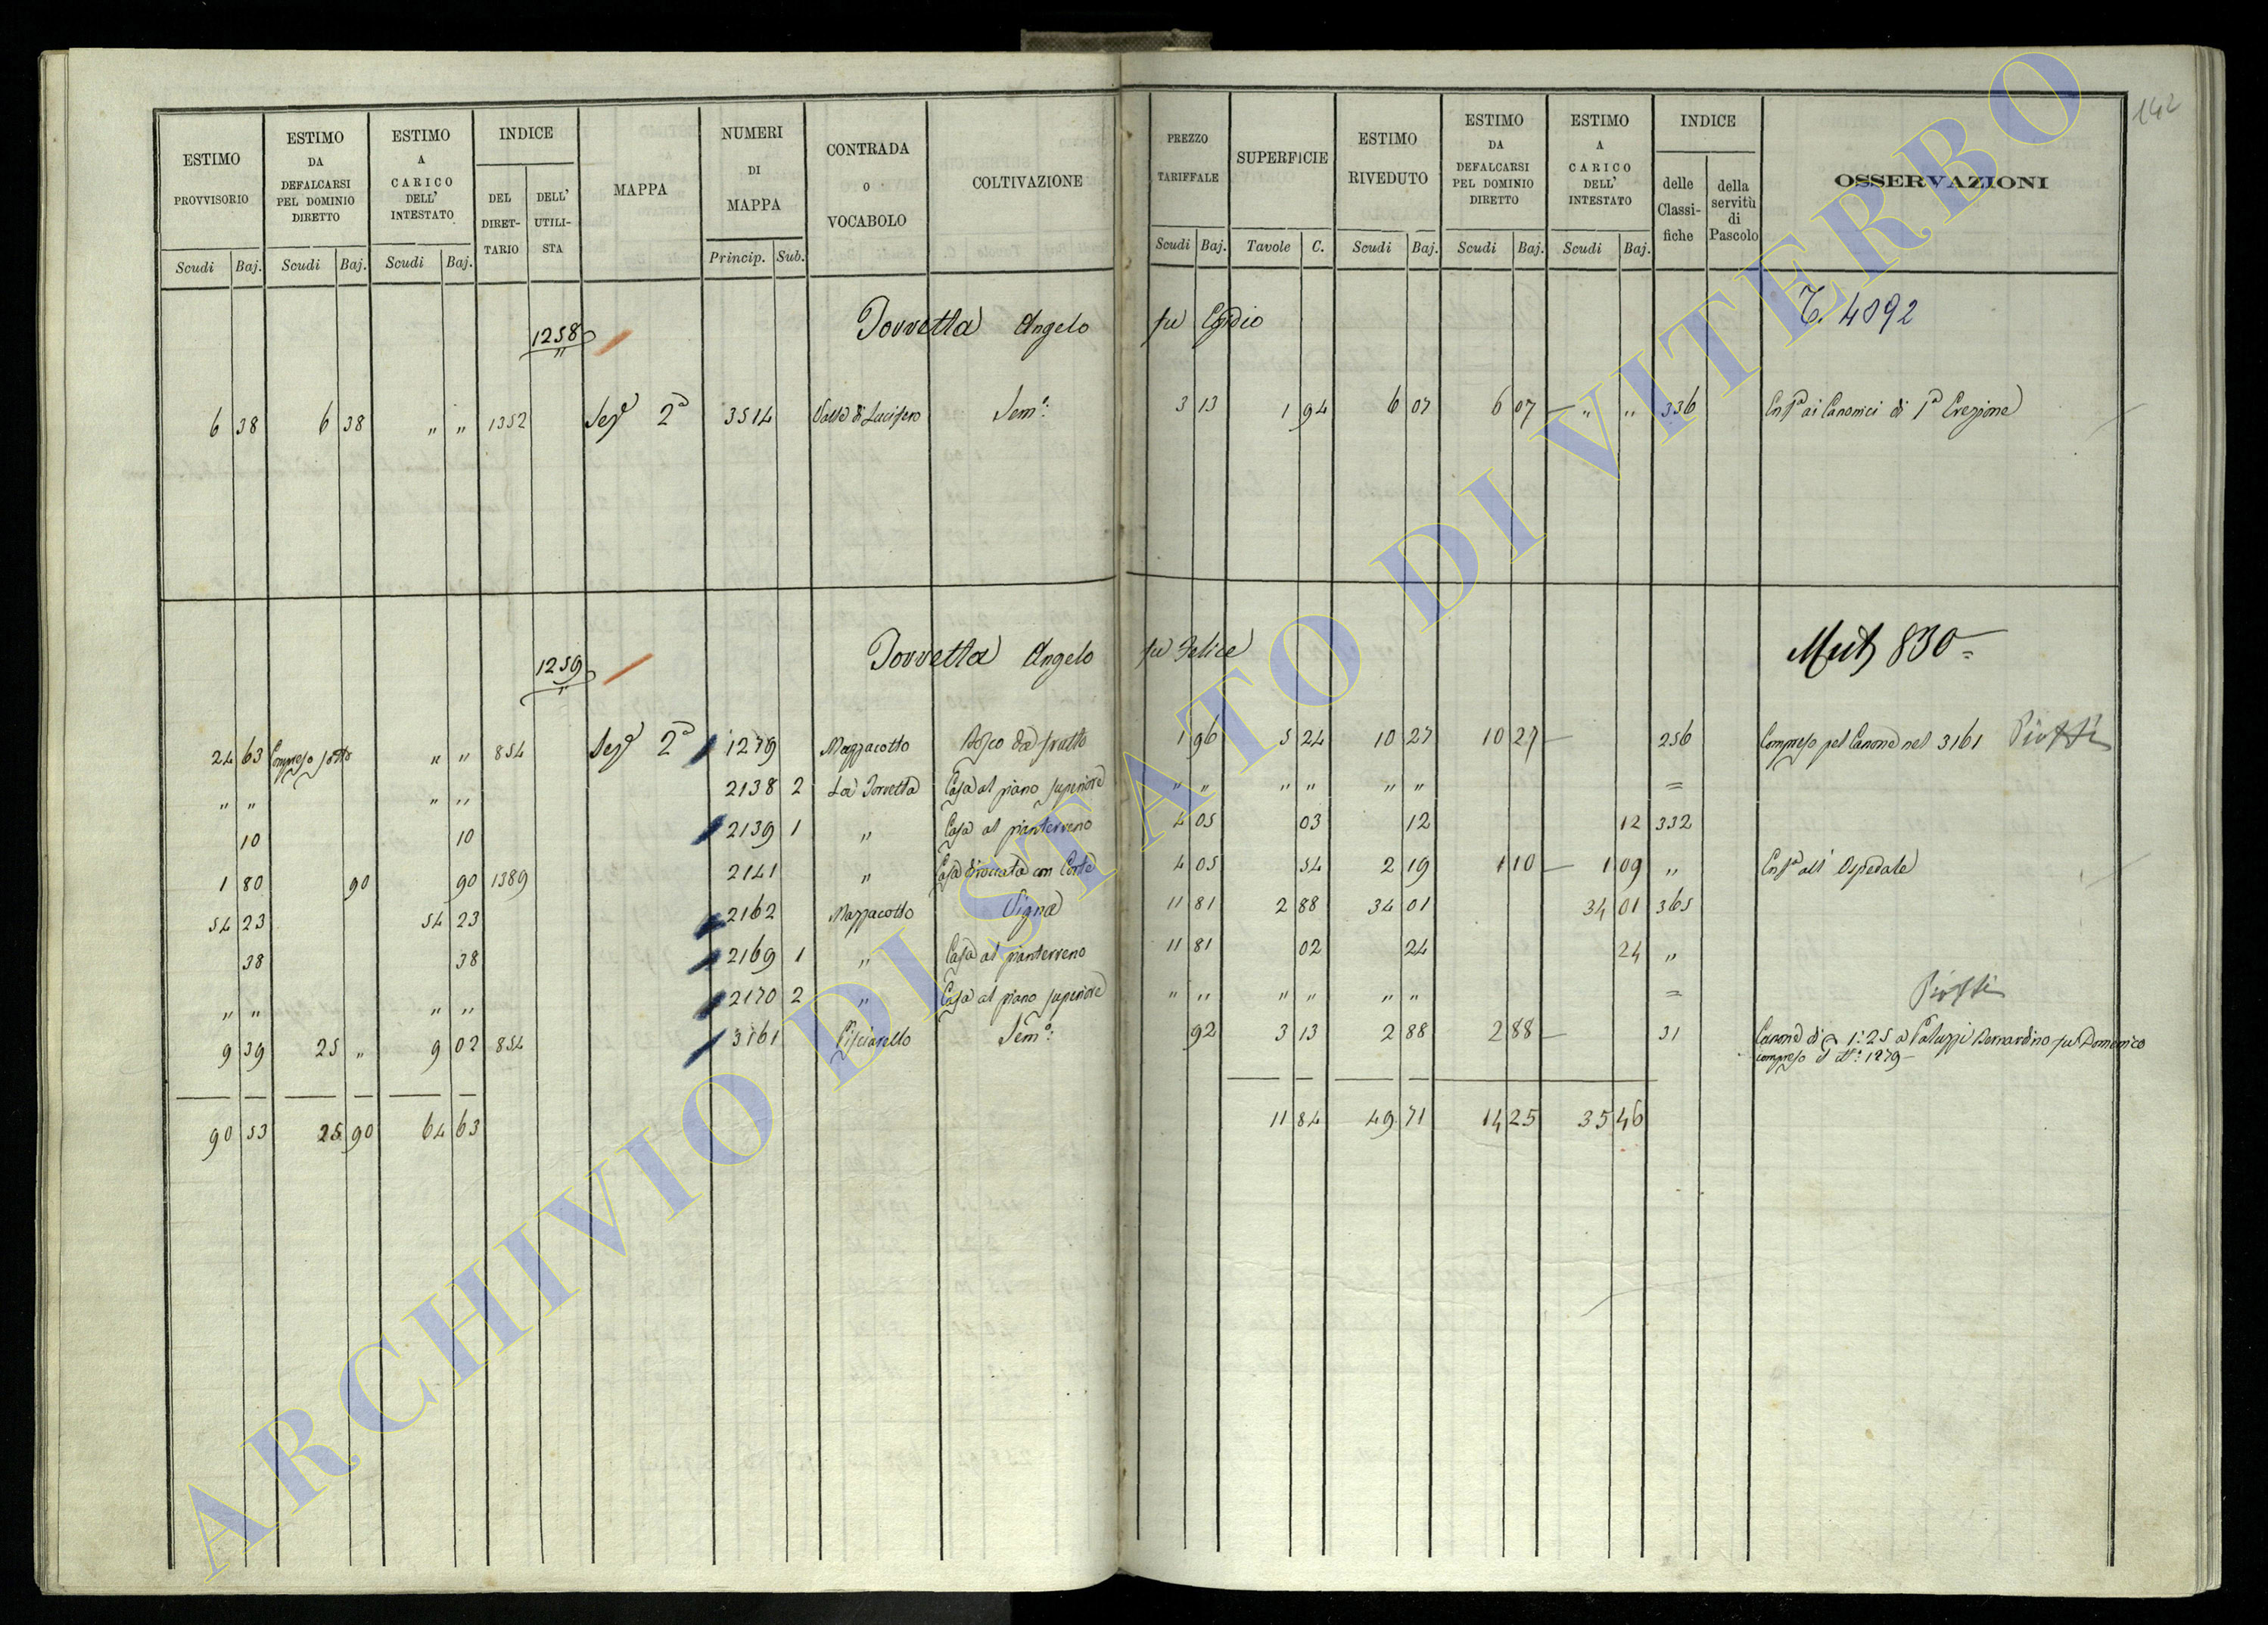 142
ESTIMO PROVVISORIO Scudi Baj. ESTIMO DA DEFALCARSI PEL DOMINIO DIRETTO Scudi Baj. ESTIMO A CARICO DELL' INTESTATO Scudi Baj. INDICE DEL DIRETTARIO DELL' UTILISTA MAPPA NUMERI DI MAPPA Princip. Sub. CONTRADA O VOCABOLO COLTIVAZIONE PREZZO TARIFFALE Scudi Baj. SUPERFICIE Tavole C. ESTIMO RIVEDUTO Scudi Baj. ESTIMO DA DEFALCARSI PEL DOMINIO DIRETTO Scudi Baj. ESTIMO A CARICO DELL' INTESTATO Scudi Baj. INDICE delle Classifiche della servitù di Pascolo OSSERVAZIONI
1258 Torretta Angelo fu Egidio T. 4892
6 38 6 38 " " 1352 Sez.e 2a 3514 Valle di Lucifero Sem.o: 3 13 1 94 6 07 6 07 — " " 336 Enf.a ai Canonici di 1a Erezione
1259 Torretta Angelo fu Felice Mut 830
24 63 Compreso sotto " " 854 Sez.e 2a 1279 Mazzacotto Bosco da frutto 1 96 5 24 10 27 10 27 — 256 Compreso pel Canone nel 3161
" " " " 2138 2 La Torretta Casa al piano superiore " " " " " " =
10 10 2139 1 " Casa al pianterreno 4 05 03 12 12 332
1 80 90 90 1389 2141 " Casa diroccata con Corte 4 05 54 2 19 1 10 — 1 09 " Enf.a all' Ospedale
54 23 54 23 2162 Mazzacotto Vigna 11 81 2 88 34 01 34 01 365
38 38 2169 1 " Casa al pianterreno 11 81 02 24 24 "
" " " " 2170 2 " Casa al piano superiore " " " " " " =
9 39 25 " 9 02 854 3161 Pisciarello Sem.o: 92 3 13 2 88 2 88 — 31 Canone di 1:25 a Paluzzi Bernardino fu Domenico
compreso il N.o: 1279 —
90 53 25 90 64 63 11 84 49 71 14 25 35 46
ARCHIVIO DI STATO DI VITERBO